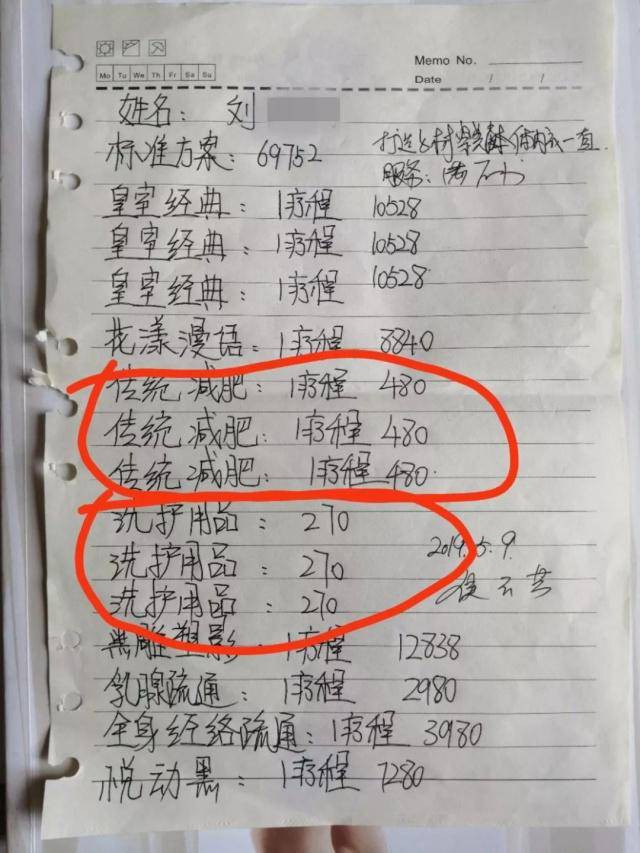 Memo No.
Mo Tu We Th Fr Sa Su
Date / /
姓名: 刘
标准方案: 69752
打造 身材 一直
服务:
皇室经典: 1疗程 10528
皇室经典: 1疗程 10528
皇室经典: 1疗程 10528
花漾漫语: 1疗程 8840
传统减肥: 1疗程 480
传统减肥: 1疗程 480
传统减肥: 1疗程 480
洗护用品: 270
洗护用品: 270
洗护用品: 270
2019.5.9.
雕塑影: 1疗程 12838
乳腺疏通: 1疗程 2980
全身经络疏通: 1疗程 3980
悦动黑: 1疗程 7280